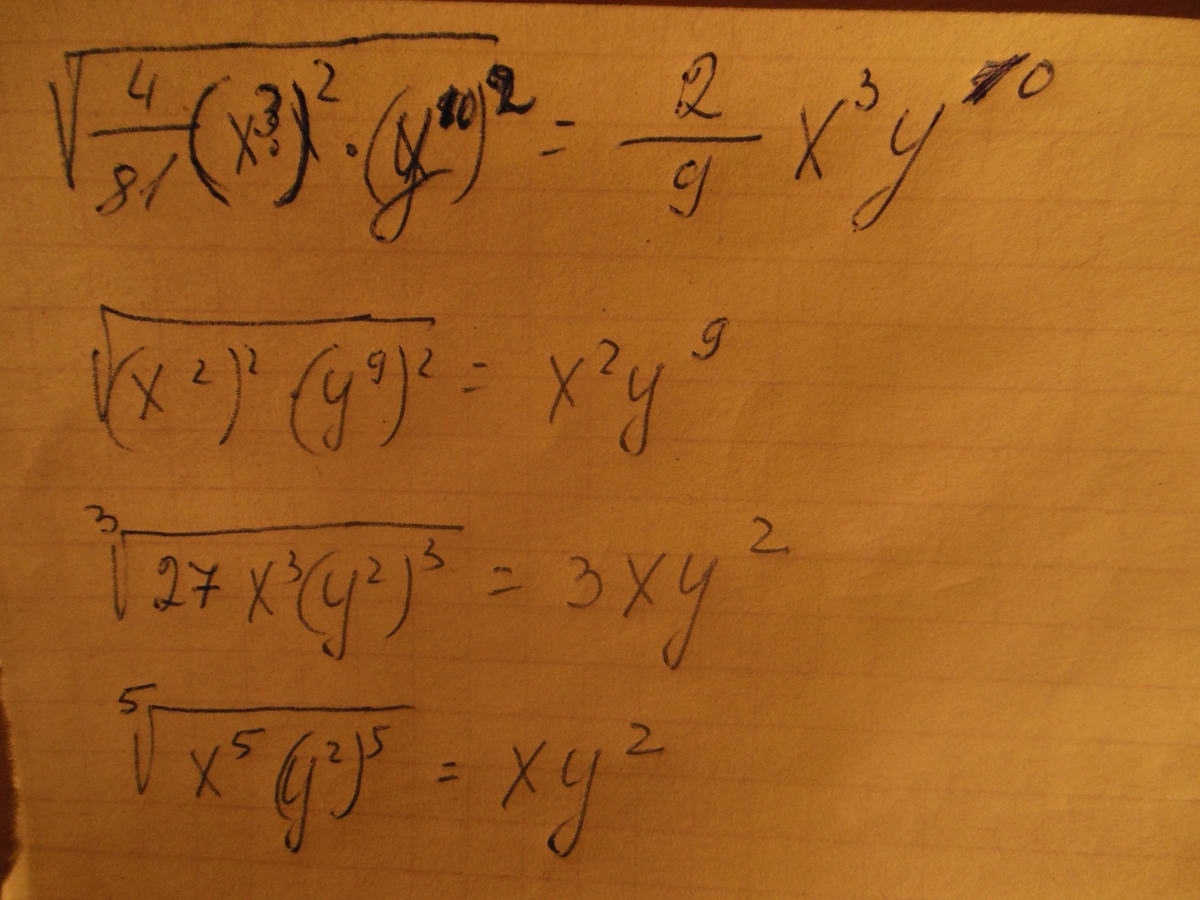 √(4/81 (x³)² · (y¹⁰)²) = 2/9 x³y¹⁰
√((x²)² (y⁹)²) = x²y⁹
³√(27x³(y²)³) = 3xy²
⁵√(x⁵(y²)⁵) = xy²